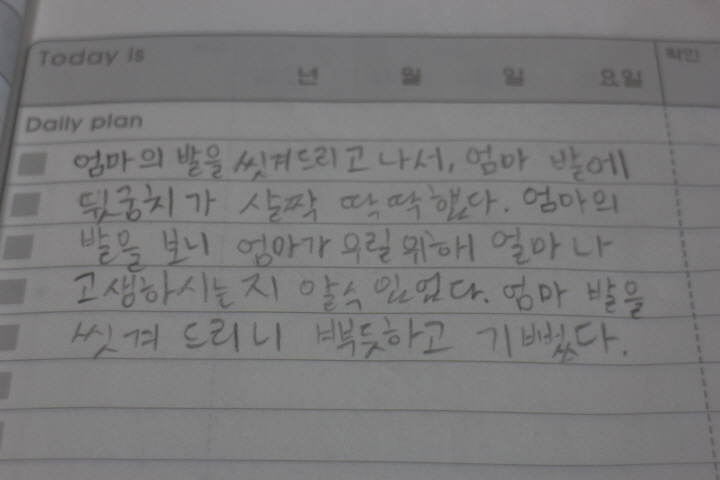 Today is
년 월 일 요일 확인
Daily plan
엄마의 발을 씻겨드리고 나서, 엄마 발에
뒷굼치가 살짝 딱딱했다. 엄마의
발을 보니 엄마가 우릴 위해 얼마나
고생하시는지 알수 있었다. 엄마 발을
씻겨 드리니 뿌듯하고 기뻤다.